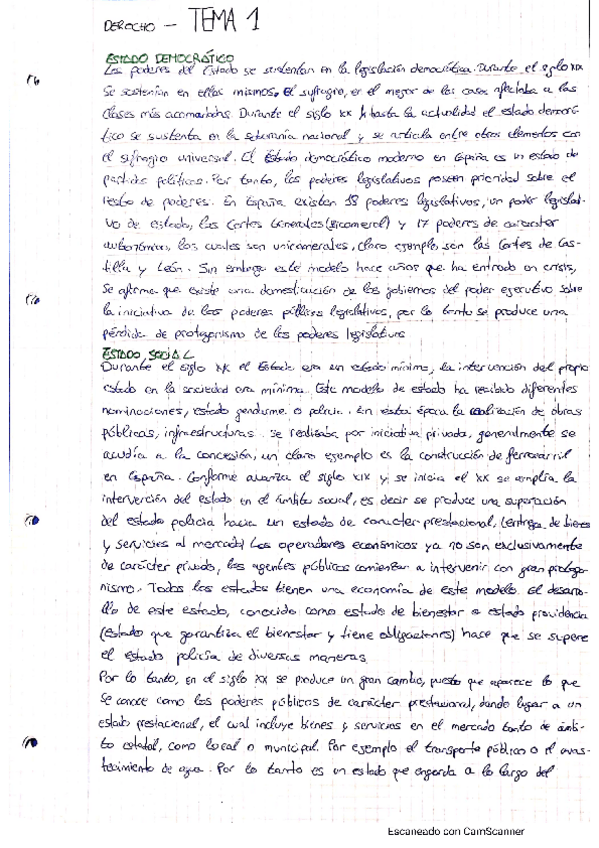 DERECHO - TEMA 1
ESTADO DEMOCRÁTICO
Los poderes del Estado se sustentan en la legislación democrática. Durante el siglo XIX
se sustentan en ellas mismas. El sufragio, en el mejor de los casos afectaba a las
clases más acomodadas. Durante el siglo XX y hasta la actualidad el estado democrá-
tico se sustenta en la soberanía nacional y se articula entre otros elementos con
el sufragio universal. El Estado democrático moderno en España es un estado de
partidos políticos. Por tanto, los poderes legislativos poseen prioridad sobre el
resto de poderes. En España existen 18 poderes legislativos, un poder legislati-
vo de estado, las Cortes Generales (bicameral) y 17 poderes de caracter
autonómico, los cuales son unicamerales, claro ejemplo son las Cortes de Cas-
tilla y León. Sin embargo este modelo hace años que ha entrado en crisis,
se afirma que existe una domesticación de los gobiernos del poder ejecutivo sobre
la iniciativa de los poderes públicos legislativos, por lo tanto se produce una
pérdida de protagonismo de los poderes legislativos
ESTADO SOCIAL
Durante el siglo XIX el Estado era un estado mínimo, la intervención del propio
estado en la sociedad era mínima. Este modelo de estado ha recibido diferentes
nominaciones, estado gendarme o policía. En esta época la realización de obras
públicas, infraestructuras se realizaba por iniciativa privada, generalmente se
acudía a la concesión, un claro ejemplo es la construcción de ferrocarril
en España. Conforme avanza el siglo XIX y se inicia el XX se amplía la
intervención del estado en el ámbito social, es decir se produce una superación
del estado policía hacia un estado de caracter prestacional, (entrega de bienes
y servicios al mercado) Los operadores económicos ya no son exclusivamente
de carácter privado, los agentes públicos comienzan a intervenir con gran protago-
nismo. Todos los estados tienen una economía de este modelo. El desarro-
llo de este estado, conocido como estado de bienestar o estado providencia
(estado que garantiza el bienestar y tiene obligaciones) hace que se supere
el estado policía de diversas maneras.
Por lo tanto, en el siglo XX se produce un gran cambio, puesto que aparece lo que
se conoce como los poderes públicos de carácter prestacional, dando lugar a un
estado prestacional, el cual incluye bienes y servicios en el mercado tanto de ámbi-
to estatal, como local o municipal. Por ejemplo el transporte público o el abas-
tecimiento de agua. Por lo tanto es un estado que engorda a lo largo del
Escaneado con CamScanner